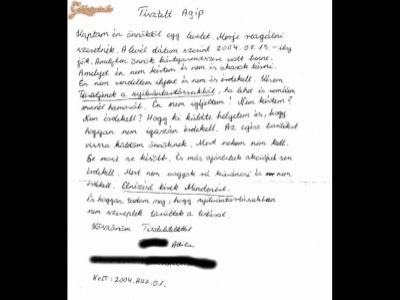 Tisztelt Agip
Kaptam én önöktől egy levelet. Merje reagálni
szeretnék. A levél dátum szerint 2004.07.15.-éig
jött. Amelyben önök kártyarendszere volt benne.
Amelyet én nem kértem és nem is akarok kérni.
Én nem rendeltem ilyent és nem is érdekell. Kérem
Töröljenek a nyilvántartásukból, ha lehet és remélem
minél hamarább. Én nem igényeltem! Nem kértem?
Nem érdekell? Hogy ki küldte helyetem és, hogy
hogyan nem igazán érdekell. Az egész boritékot
vissza küldöm önöknek. Mert nekem nem kell.
Se most se később. És más ajánlatuk akciójuk sem
érdekell. Mert nem vagyok rá kíváncsi és nem
érdekell. Elnézést kérek Mindenért.
És hogyan tudom meg, hogy nyilvántartásukban
nem szereplek töröltek a listáról.
Köszönöm Tisztelettel
Attila
Kelt: 2004. Aug. 01.